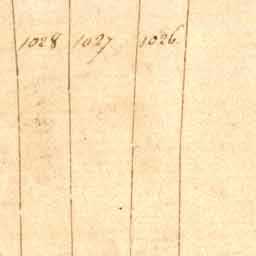 1028 1027 1026